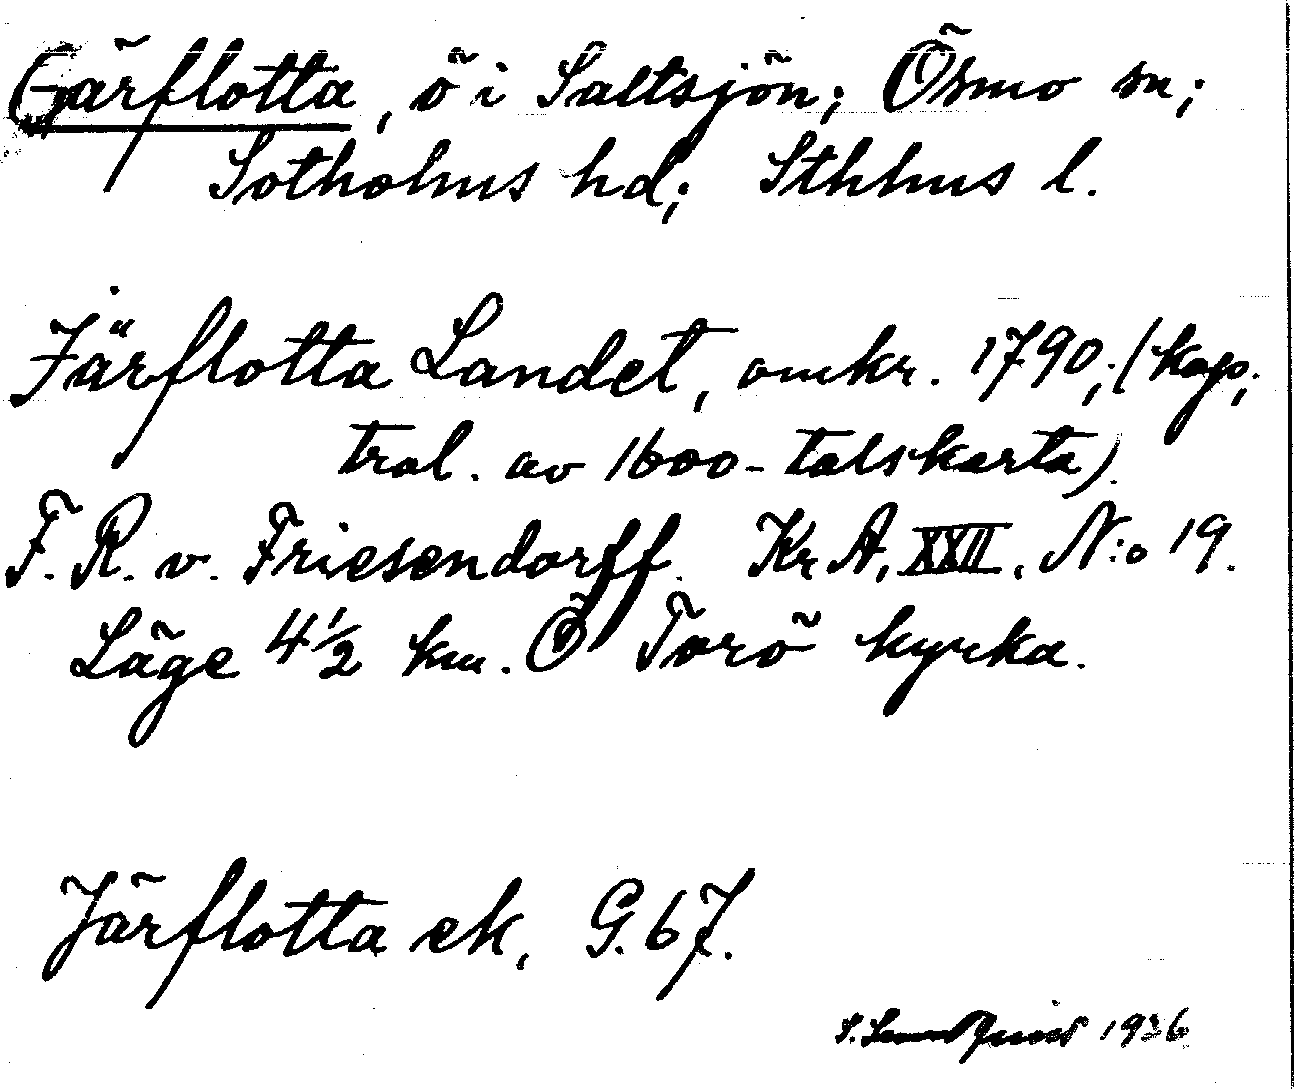 Gärflotta, ö i Saltsjön; Ösmo sn;
Sotholms hd; Sthlms l.
Järflotta Landet, omkr. 1790; (kop.
tral. av 1600-talskarta).
F. R. v. Friesendorff. Kr A, XXII, N:o 19.
Läge 4½ km. Ö Torö kyrka.
Järflotta ek, G. 67.
S. Lundquist 1936